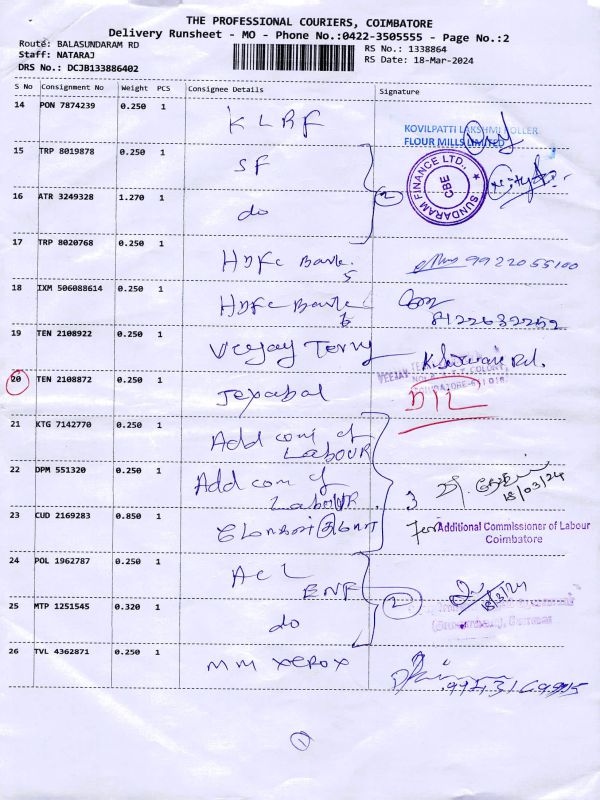 THE PROFESSIONAL COURIERS, COIMBATORE
Delivery Runsheet - MO - Phone No.:0422-3505555 - Page No.:2
Route: BALASUNDARAM RD
RS No.: 1338864
Staff: NATARAJ
RS Date: 18-Mar-2024
DRS No.: DCJB133886402
S No Consignment No Weight PCS Consignee Details Signature
14 PON 7874239 0.250 1 KLRF
KOVILPATTI LAKSHMI ROLLER
FLOUR MILLS LIMITED
15 TRP 8019878 0.250 1 SF
SUNDARAM FINANCE LTD., CBE
2
16 ATR 3249328 1.270 1 do
17 TRP 8020768 0.250 1 HDFC Bank 5 9922055100
18 IXM 506088614 0.250 1 HDFC Bank 6 8122632252
19 TEN 2108922 0.250 1 Veejay Terry
20 TEN 2108872 0.250 1 D/L
21 KTG 7142770 0.250 1 Add com of
LABOUR
22 DPM 551320 0.250 1 Add com of
LABOUR
3
18/03/24
23 CUD 2169283 0.850 1
For Additional Commissioner of Labour
Coimbatore
24 POL 1962787 0.250 1 ACL
ENF
2
18/3/24
25 MTP 1251545 0.320 1 do
26 TVL 4362871 0.250 1 MM XEROX
1